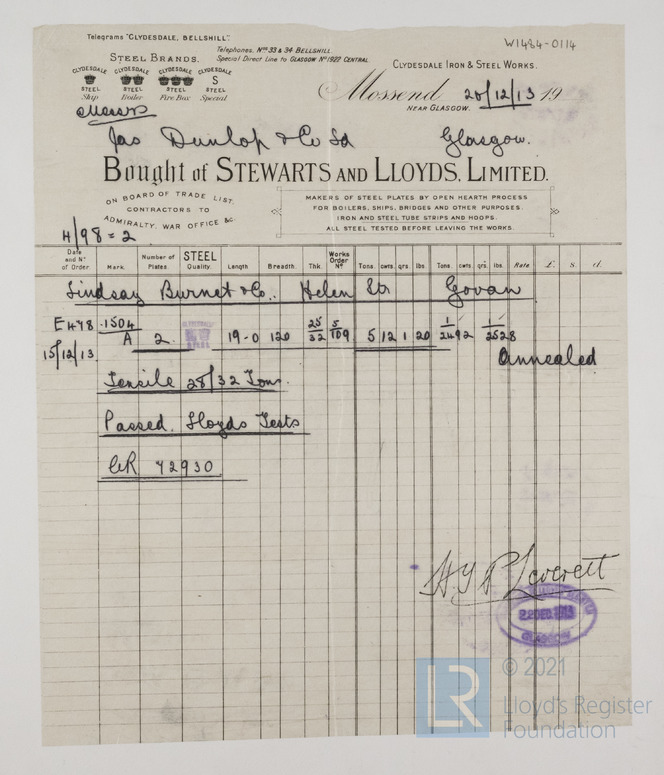 Telegrams "CLYDESDALE, BELLSHILL".
Telephones. Nos 33 & 34 BELLSHILL.
Special Direct Line to GLASGOW No 1927 CENTRAL
W1484-0114
STEEL BRANDS.
CLYDESDALE CLYDESDALE CLYDESDALE CLYDESDALE
S
STEEL STEEL STEEL STEEL
Ship Boiler Fire Box Special
CLYDESDALE IRON & STEEL WORKS.
Mossend 20/12/13 19
NEAR GLASGOW.
Messrs
Jas Dunlop & Co Ld Glasgow.
Bought of STEWARTS AND LLOYDS, LIMITED.
ON BOARD OF TRADE LIST.
CONTRACTORS TO
ADMIRALTY, WAR OFFICE &c.
MAKERS OF STEEL PLATES BY OPEN HEARTH PROCESS
FOR BOILERS, SHIPS, BRIDGES AND OTHER PURPOSES.
IRON AND STEEL TUBE STRIPS AND HOOPS.
ALL STEEL TESTED BEFORE LEAVING THE WORKS.
4/98 = 2
Date and No of Order. Mark. Number of Plates. STEEL Quality. Length Breadth. Thk. Works Order No Tons. cwts. qrs. lbs. Tons. cwts. qrs. lbs. Rate £. s. d.
Lindsay Burnet & Co. Helen St Govan
E498 1504/A 2 19-0 120 25/32 5/109 5 12 1 20 1/2492 1/2528
15/12/13 Annealed
Tensile 28/32 Tons.
Passed Lloyds Tests
CR 42930
H Y P Leverett
22 DEC 1913
GLASGOW
© 2021
LR Lloyd's Register
Foundation